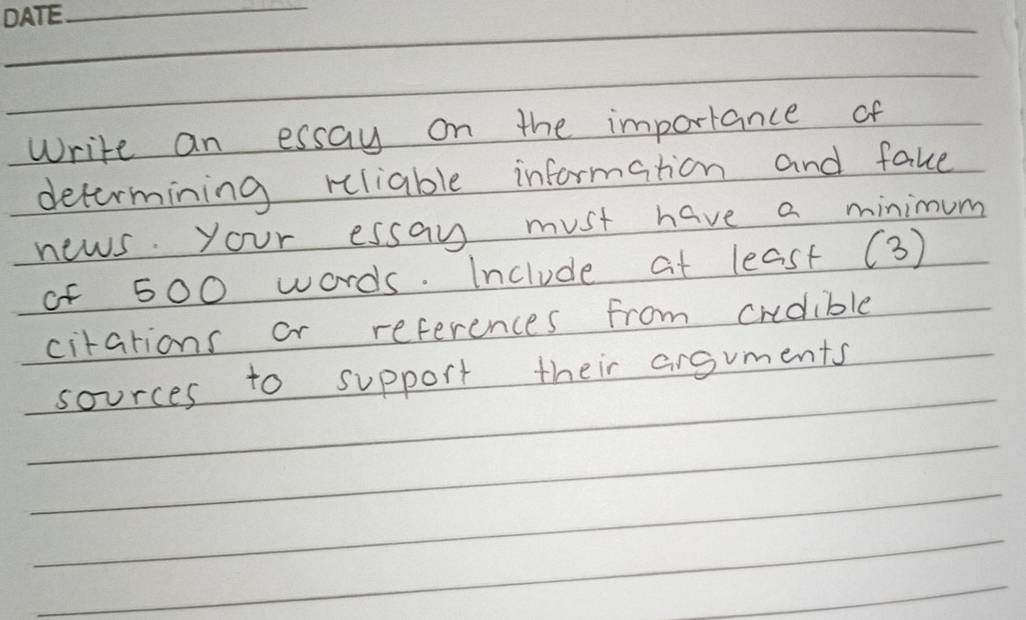 DATE
Write an essay on the importance of
determining reliable information and fake
news. Your essay must have a minimum
of 500 words. Include at least (3)
citations or references from credible
sources to support their arguments